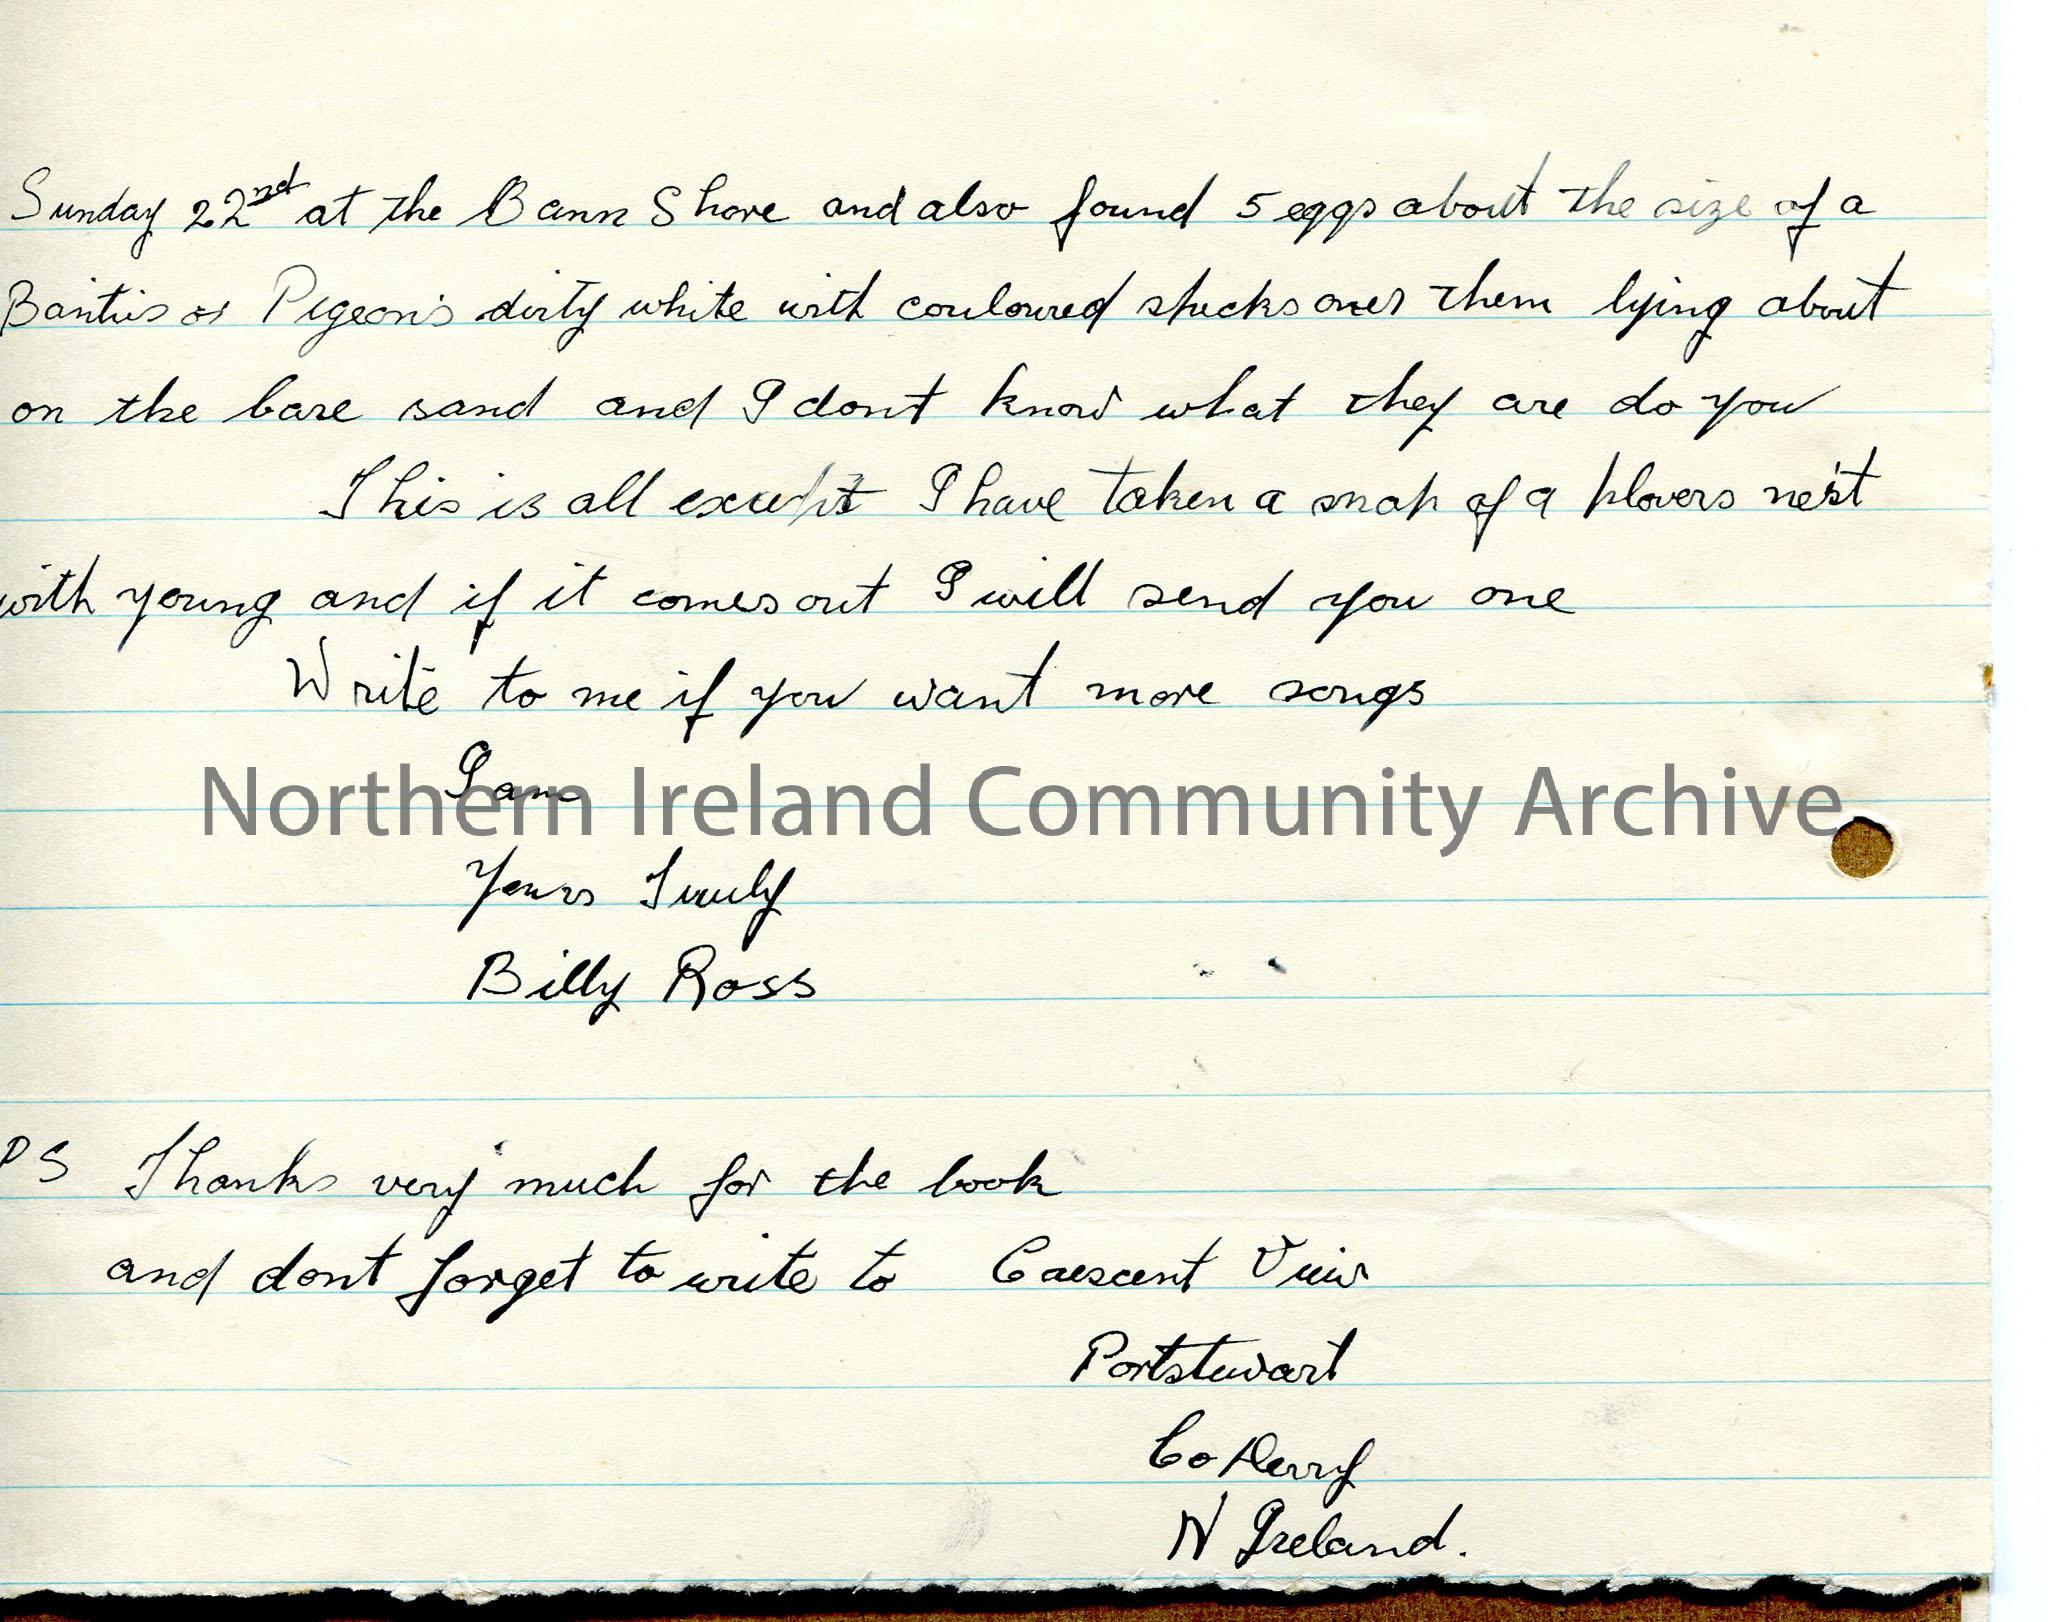 Sunday 22nd at the Bann Shore and also found 5 eggs about the size of a
Bantis or Pigeon's dirty white with couloured specks over them lying about
on the bare sand and I dont know what they are do you
This is all except I have taken a snap of a plovers nest
with young and if it comes out I will send you one
Write to me if you want more songs
I am
Northern Ireland Community Archive
Yours Truly
Billy Ross
PS Thanks very much for the book
and dont forget to write to Crescent View
Portstewart
Co Derry
N Ireland.